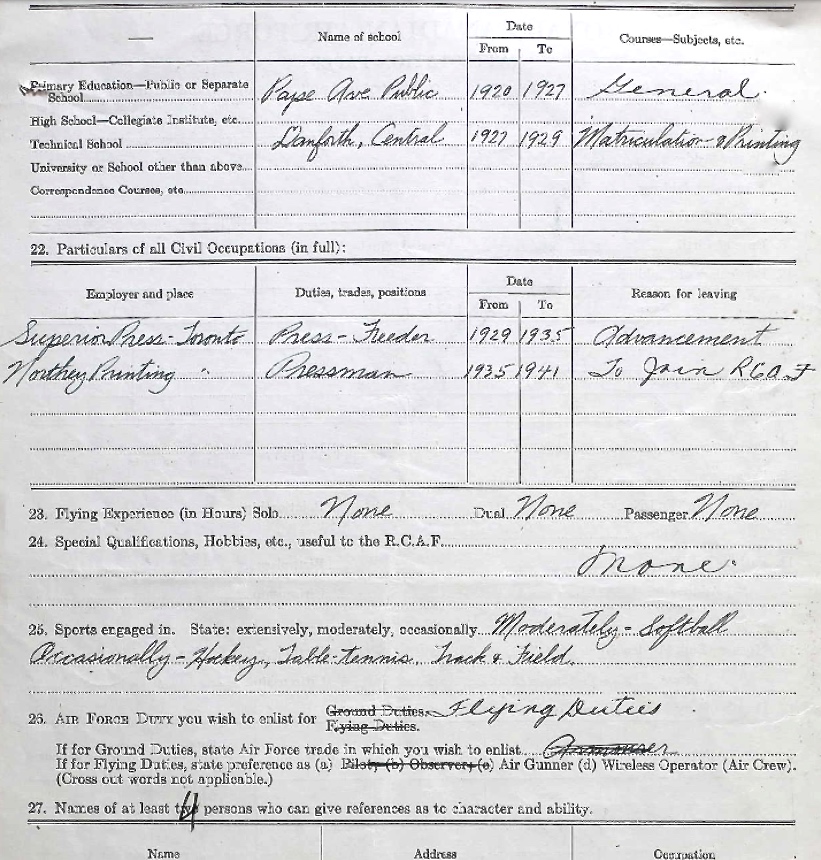 Name of school Date Courses—Subjects, etc.
From To
Primary Education—Public or Separate
School Pape Ave Public 1920 1927 General.
High School—Collegiate Institute, etc.
Technical School Danforth, Central 1927 1929 Matriculation & Printing
University or School other than above
Correspondence Courses, etc.
22. Particulars of all Civil Occupations (in full):
Employer and place Duties, trades, positions Date Reason for leaving
From To
Superior Press - Toronto Press - Feeder 1929 1935 Advancement
Northey Printing " Pressman 1935 1941 To Join RCAF
23. Flying Experience (in Hours) Solo None Dual None Passenger None
24. Special Qualifications, Hobbies, etc., useful to the R.C.A.F.
None.
25. Sports engaged in. State: extensively, moderately, occasionally Moderately - Softball
Occasionally - Hockey, Table-tennis, Track & Field.
26. AIR FORCE DUTY you wish to enlist for Ground Duties. Flying Duties
Flying Duties.
If for Ground Duties, state Air Force trade in which you wish to enlist Armourer
If for Flying Duties, state preference as (a) Pilot, (b) Observer, (c) Air Gunner (d) Wireless Operator (Air Crew).
(Cross out words not applicable.)
27. Names of at least 4 persons who can give references as to character and ability.
Name Address Occupation